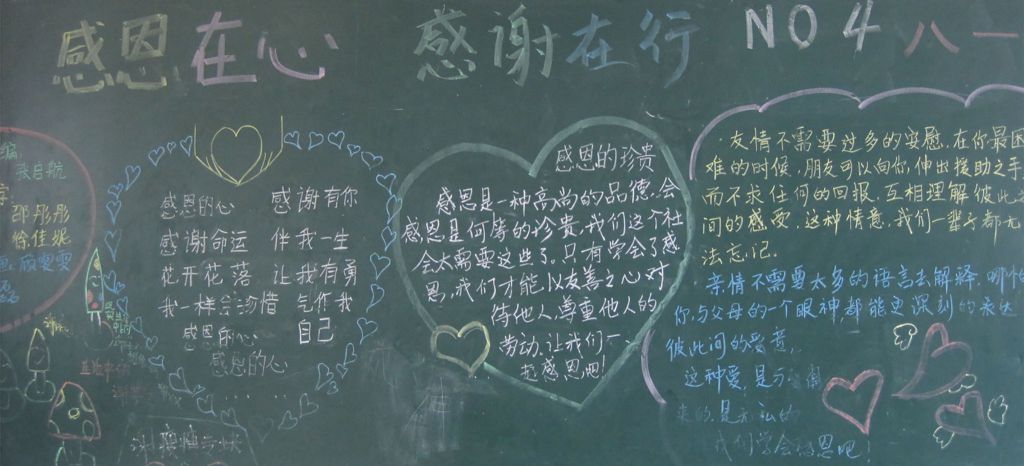 感恩在心 感谢在行 NO4 八一
编
张自航
字
邵彤彤
徐佳妮
感恩的心 感谢有你
感谢命运 伴我一生
花开花落 让我有勇
我一样会珍惜 气作我
感恩的心 自己
感恩的心
... ...
感恩的珍贵
感恩是一种高尚的品德,会
感恩是何等的珍贵,我们这个社
会太需要这些了。只有学会了感
恩,我们才能以友善之心对
待他人,尊重他人的
劳动,让我们一
起感恩吧!
友情不需要过多的安慰,在你最困
难的时候,朋友可以向你伸出援助之手,
而不求任何的回报,互相理解彼此之
间的感受,这种情意,我们一辈子都无
法忘记。
亲情不需要太多的语言去解释,哪怕
你与父母的一个眼神,都能更深刻的表达
彼此间的爱意,
这种爱,是
来的,是
我们学会感恩吧!